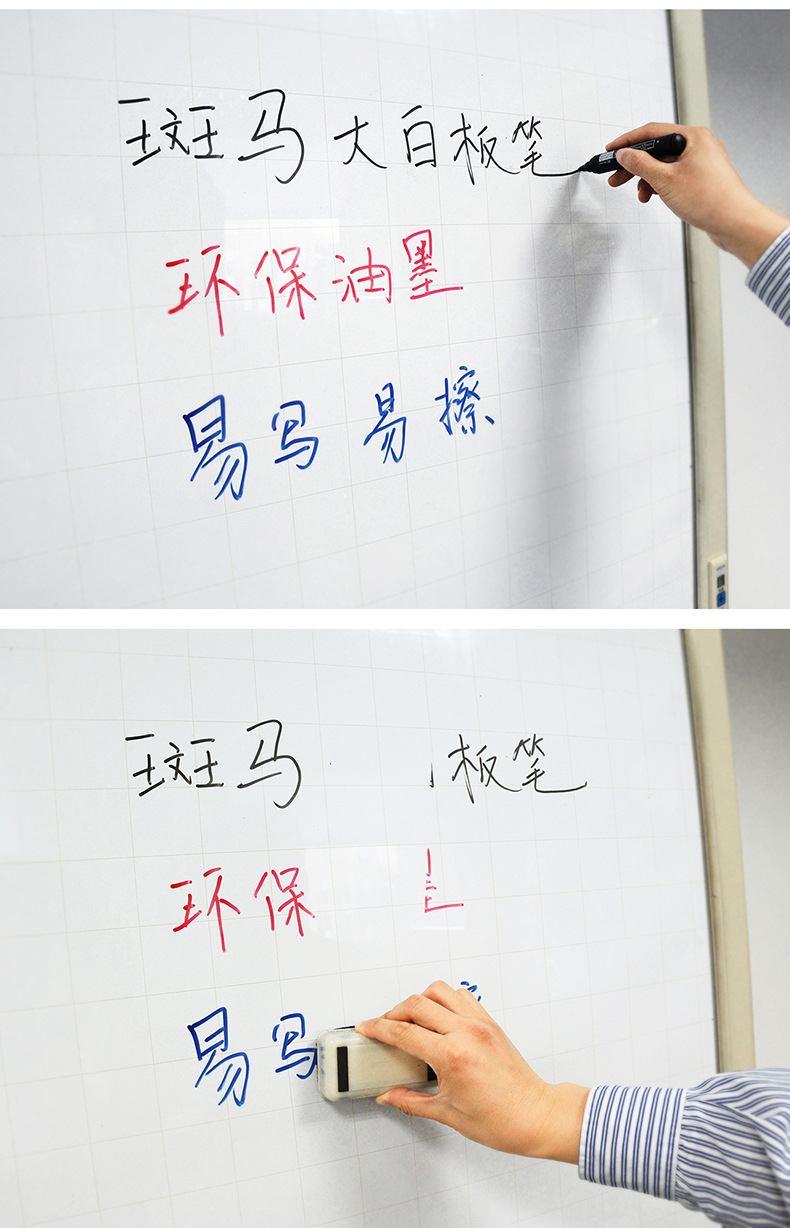 斑马大白板笔
环保油墨
易写易擦
斑马 板笔
环保
易写